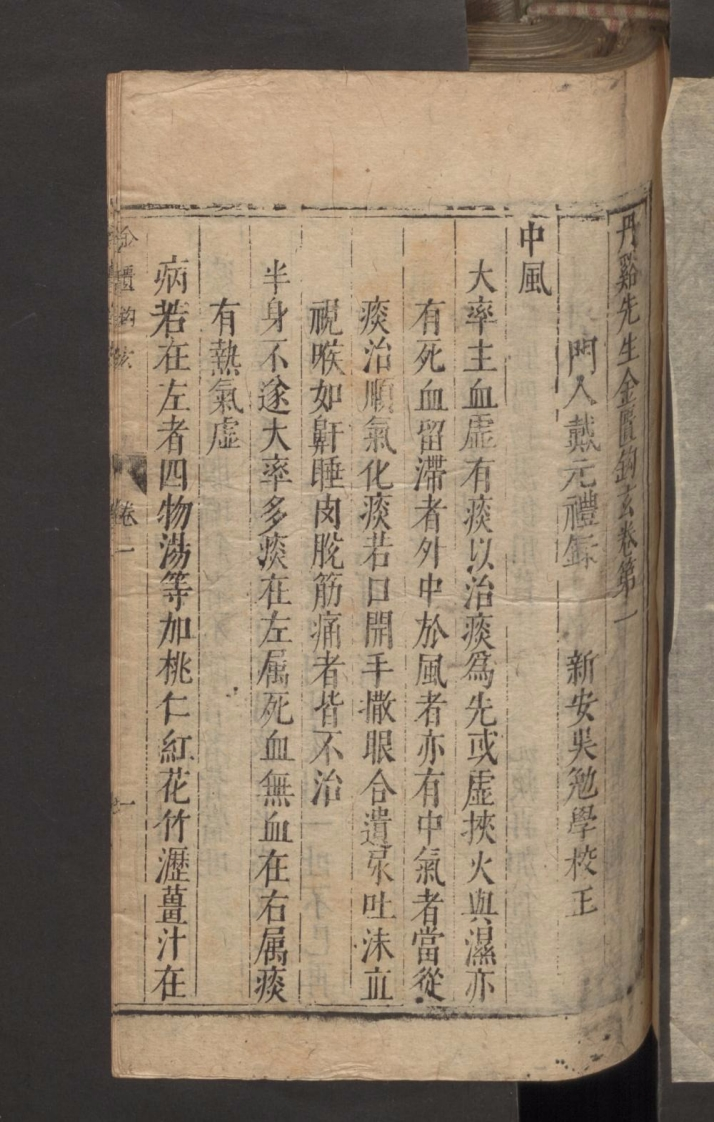 丹谿先生金匱鈎玄卷第一
門人戴元禮錄　新安吳勉學校正
中風
大率主血虛有痰以治痰爲先或虛挾火與濕亦
有死血留滯者外中於風者亦有中氣者當從
痰治順氣化痰若口開手撒眼合遺尿吐沫直
視喉如鼾睡肉脫筋痛者皆不治
半身不遂大率多痰在左属死血無血在右属痰
有熱氣虛
病若在左者四物湯等加桃仁紅花竹瀝薑汁在
金匱鈎玄　卷一　一